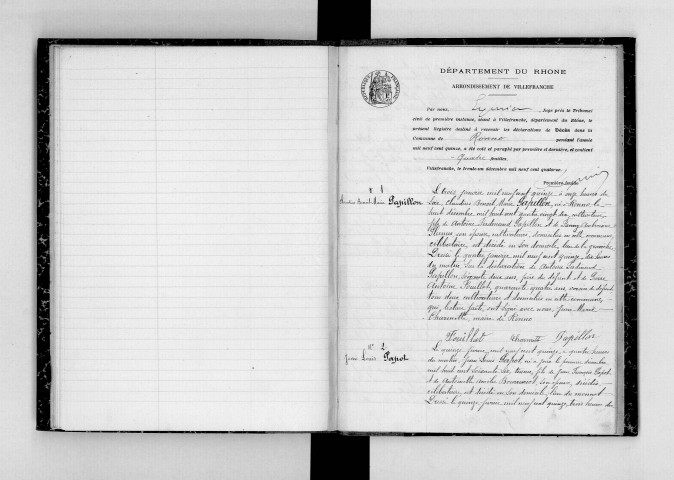 DÉPARTEMENT DU RHONE
ARRONDISSEMENT DE VILLEFRANCHE
Par nous, Juge près le Tribunal
civil de première instance, séant à Villefranche, département du Rhône, le
présent Registre destiné à recevoir les déclarations de Décès dans la
Commune de Ronno pendant l'année
mil neuf cent quinze, a été coté et paraphé par première et dernière, et contient
Quatre feuilles.
Villefranche, le trente-un décembre mil neuf cent quatorze.
Première feuille
N° 1
Claudius Benoit Marie Papillon
Le trois janvier mil neuf cent quinze, à onze heures du
soir, Claudius Benoit Marie Papillon, né à Ronno, le
huit décembre mil huit cent quatre vingt dix, cultivateur,
fils de Antoine Ferdinand Papillon et de
son épouse, cultivateurs, domiciliés en cette commune,
célibataire, est décédé en son domicile, lieu de
Dressé le quatre janvier mil neuf cent quinze, dix heures
du matin, sur la déclaration de Antoine Ferdinand
Papillon, soixante deux ans, père du défunt et de Pierre
Antoine Fouillat, quarante quatre ans, cousin du défunt
tous deux cultivateurs et domiciliés en cette commune,
qui, lecture faite, ont signé avec nous, Jean Marie
Charmette, maire de Ronno
Fouillat Charmette Papillon
N° 2
Jean Louis Papot
Le quinze janvier mil neuf cent quinze, à quatre heures
du matin, Jean Louis Papot, né à le premier décembre
mil huit cent soixante six, fils de Jean François Papot
et de Antoinette son épouse, décédés,
célibataire, est décédé en son domicile, lieu de
Dressé le quinze janvier mil neuf cent quinze, trois heures du